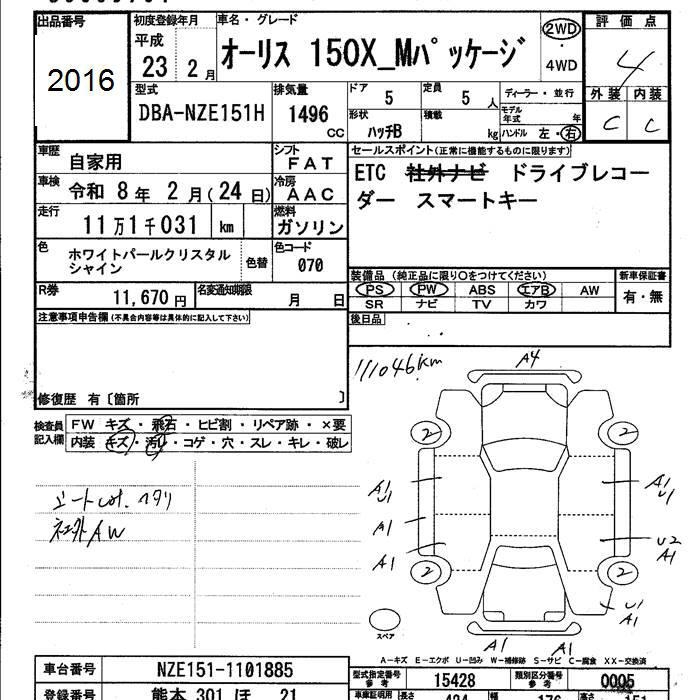 出品番号
2016
初度登録年月
平成
23 2 月
車名・グレード
オーリス 150X_Mパッケージ
2WD
・
4WD
評価点
4
外装 内装
C C
型式
DBA-NZE151H
排気量
1496
CC
ドア
5
定員
5 人
ディーラー・並行
形状
ハッチB
積載
kg
モデル年式 年
ハンドル 左・右
車歴
自家用
シフト
FAT
車検
令和 8 年 2 月(24 日)
冷房
AAC
走行
11万1千031 km
燃料
ガソリン
色
ホワイトパールクリスタル
シャイン
色替
色コード
070
R券
11,670 円
名変通知期限
月 日
セールスポイント(正常に機能するものに限ります)
ETC 社外ナビ ドライブレコー
ダー スマートキー
装備品(純正品に限り○をつけてください)
新車保証書
PS PW ABS エアB AW
SR ナビ TV カワ
有・無
後日品
注意事項申告欄(不具合内容等は具体的に記入して下さい)
修復歴 有〔箇所 〕
検査員
記入欄
FW キズ・飛石・ヒビ割・リペア跡・×要
内装 キズ・汚れ・コゲ・穴・スレ・キレ・破レ
シートcol. ヘタリ
社外AW
111046km
A4
2 2
A1
U1
A1
U1
A1
A1
U2
A1
2 2
U1
A1
A1 A1
スペア
A―キズ E―エクボ U―凹み W―補修跡 S―サビ C―腐食 XX―交換済
車台番号
NZE151-1101885
登録番号
熊本 301 ほ 21
型式指定番号
参考
15428
類別区分番号
参考
0005
車庫証明用
長さ
424
176
高さ
151